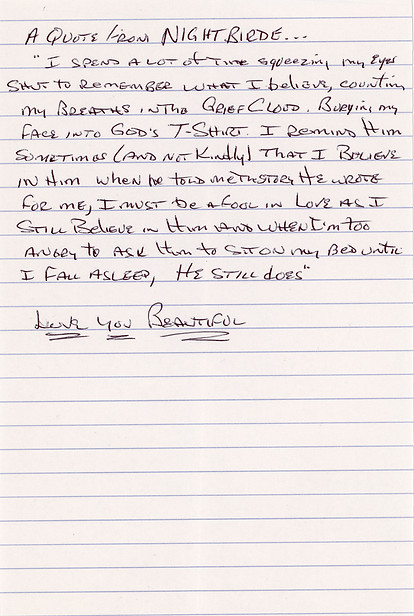 A Quote from NIGHTBIRDE...
"I SPEND A LOT OF TIME squeezing my Eyes
SHUT TO REMEMBER WHAT I believe, counting
my BREATHS IN THE GRIEF CLOUD. Burying my
FACE INTO GOD'S T-SHIRT. I REMIND HIM
SOMETIMES (AND NOT KINDLY) THAT I BELIEVE
IN HIM WHEN HE TOLD ME THE STORY HE WROTE
FOR ME, I MUST BE A FOOL IN LOVE AS I
STILL BELIEVE IN HIM AND WHEN I'M TOO
ANGRY TO ASK HIM TO SIT ON MY BED UNTIL
I FALL ASLEEP, HE STILL does"
LOVE YOU BEAUTIFUL